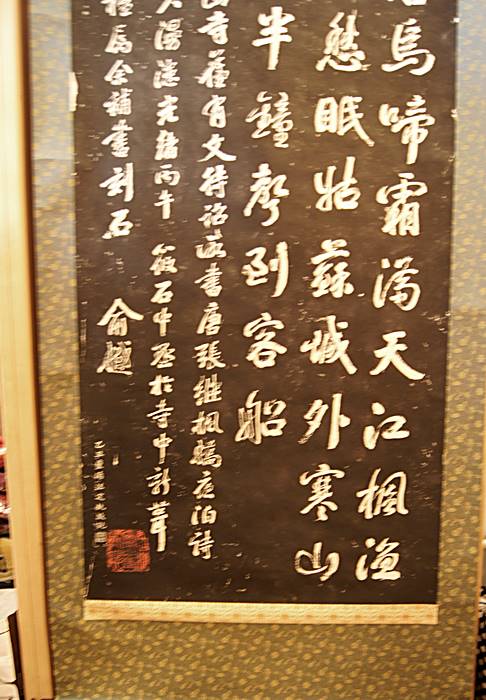 烏啼霜滿天江楓漁
愁眠姑蘇城外寒山
半鐘聲到客船
山寺舊有文待詔所書唐張繼楓橋夜泊詩
久漫漶光緒丙午筱石中丞於寺中新葺
楹屬余補書刻石
俞樾